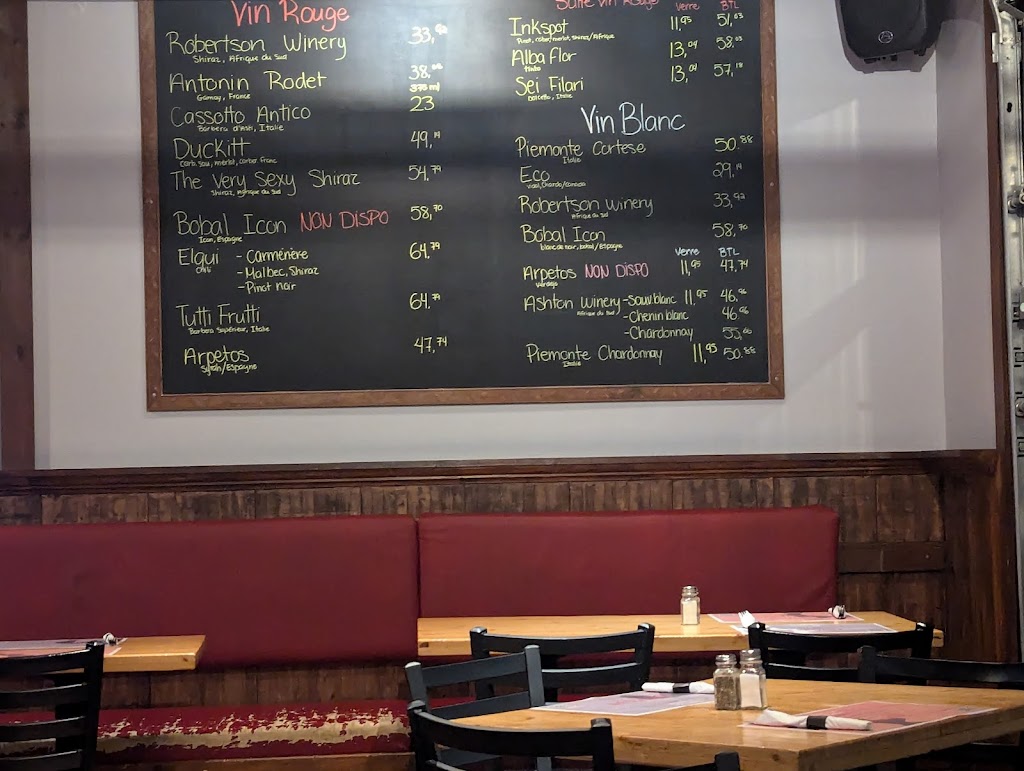 Vin Rouge
Robertson Winery 33,92
Shiraz, Afrique du Sud
Antonin Rodet 38,
Gamay, France 375 ml
Cassotto Antico 23
Barbera d'Asti, Italie
Duckitt 49,19
Carb. sau, merlot, carber franc
The Very Sexy Shiraz 54,79
Shiraz, Afrique du Sud
Bobal Icon NON DISPO 58,70
Icon, Espagne
Elqui - Carménère 64,79
Chili
- Malbec, Shiraz
- Pinot noir
Tutti Frutti 64,79
Barbera Supérieur, Italie
Arpetos 47,74
Syrah/Espagne
Suite Vin Rouge Verre BTL
Inkspot 11,95 51,03
Alba flor 13,04 58,03
Italie
Sei Filari 13,04 57,
Dolcetto, Italie
Vin Blanc
Piemonte Cortese 50.88
Italie
Eco 29,19
Vidal, Chardo/Canada
Robertson winery 33,92
Afrique du Sud
Bobal Icon 58,70
blanc de noir, bobal/Espagne
Verre BTL
Arpetos NON DISPO 11,95 47,74
Verdejo
Ashton Winery - Sauv. blanc 11,95 46,96
Afrique du Sud
- Chenin blanc 46,96
- Chardonnay 55,
Piemonte Chardonnay 11,95 50.88
Italie